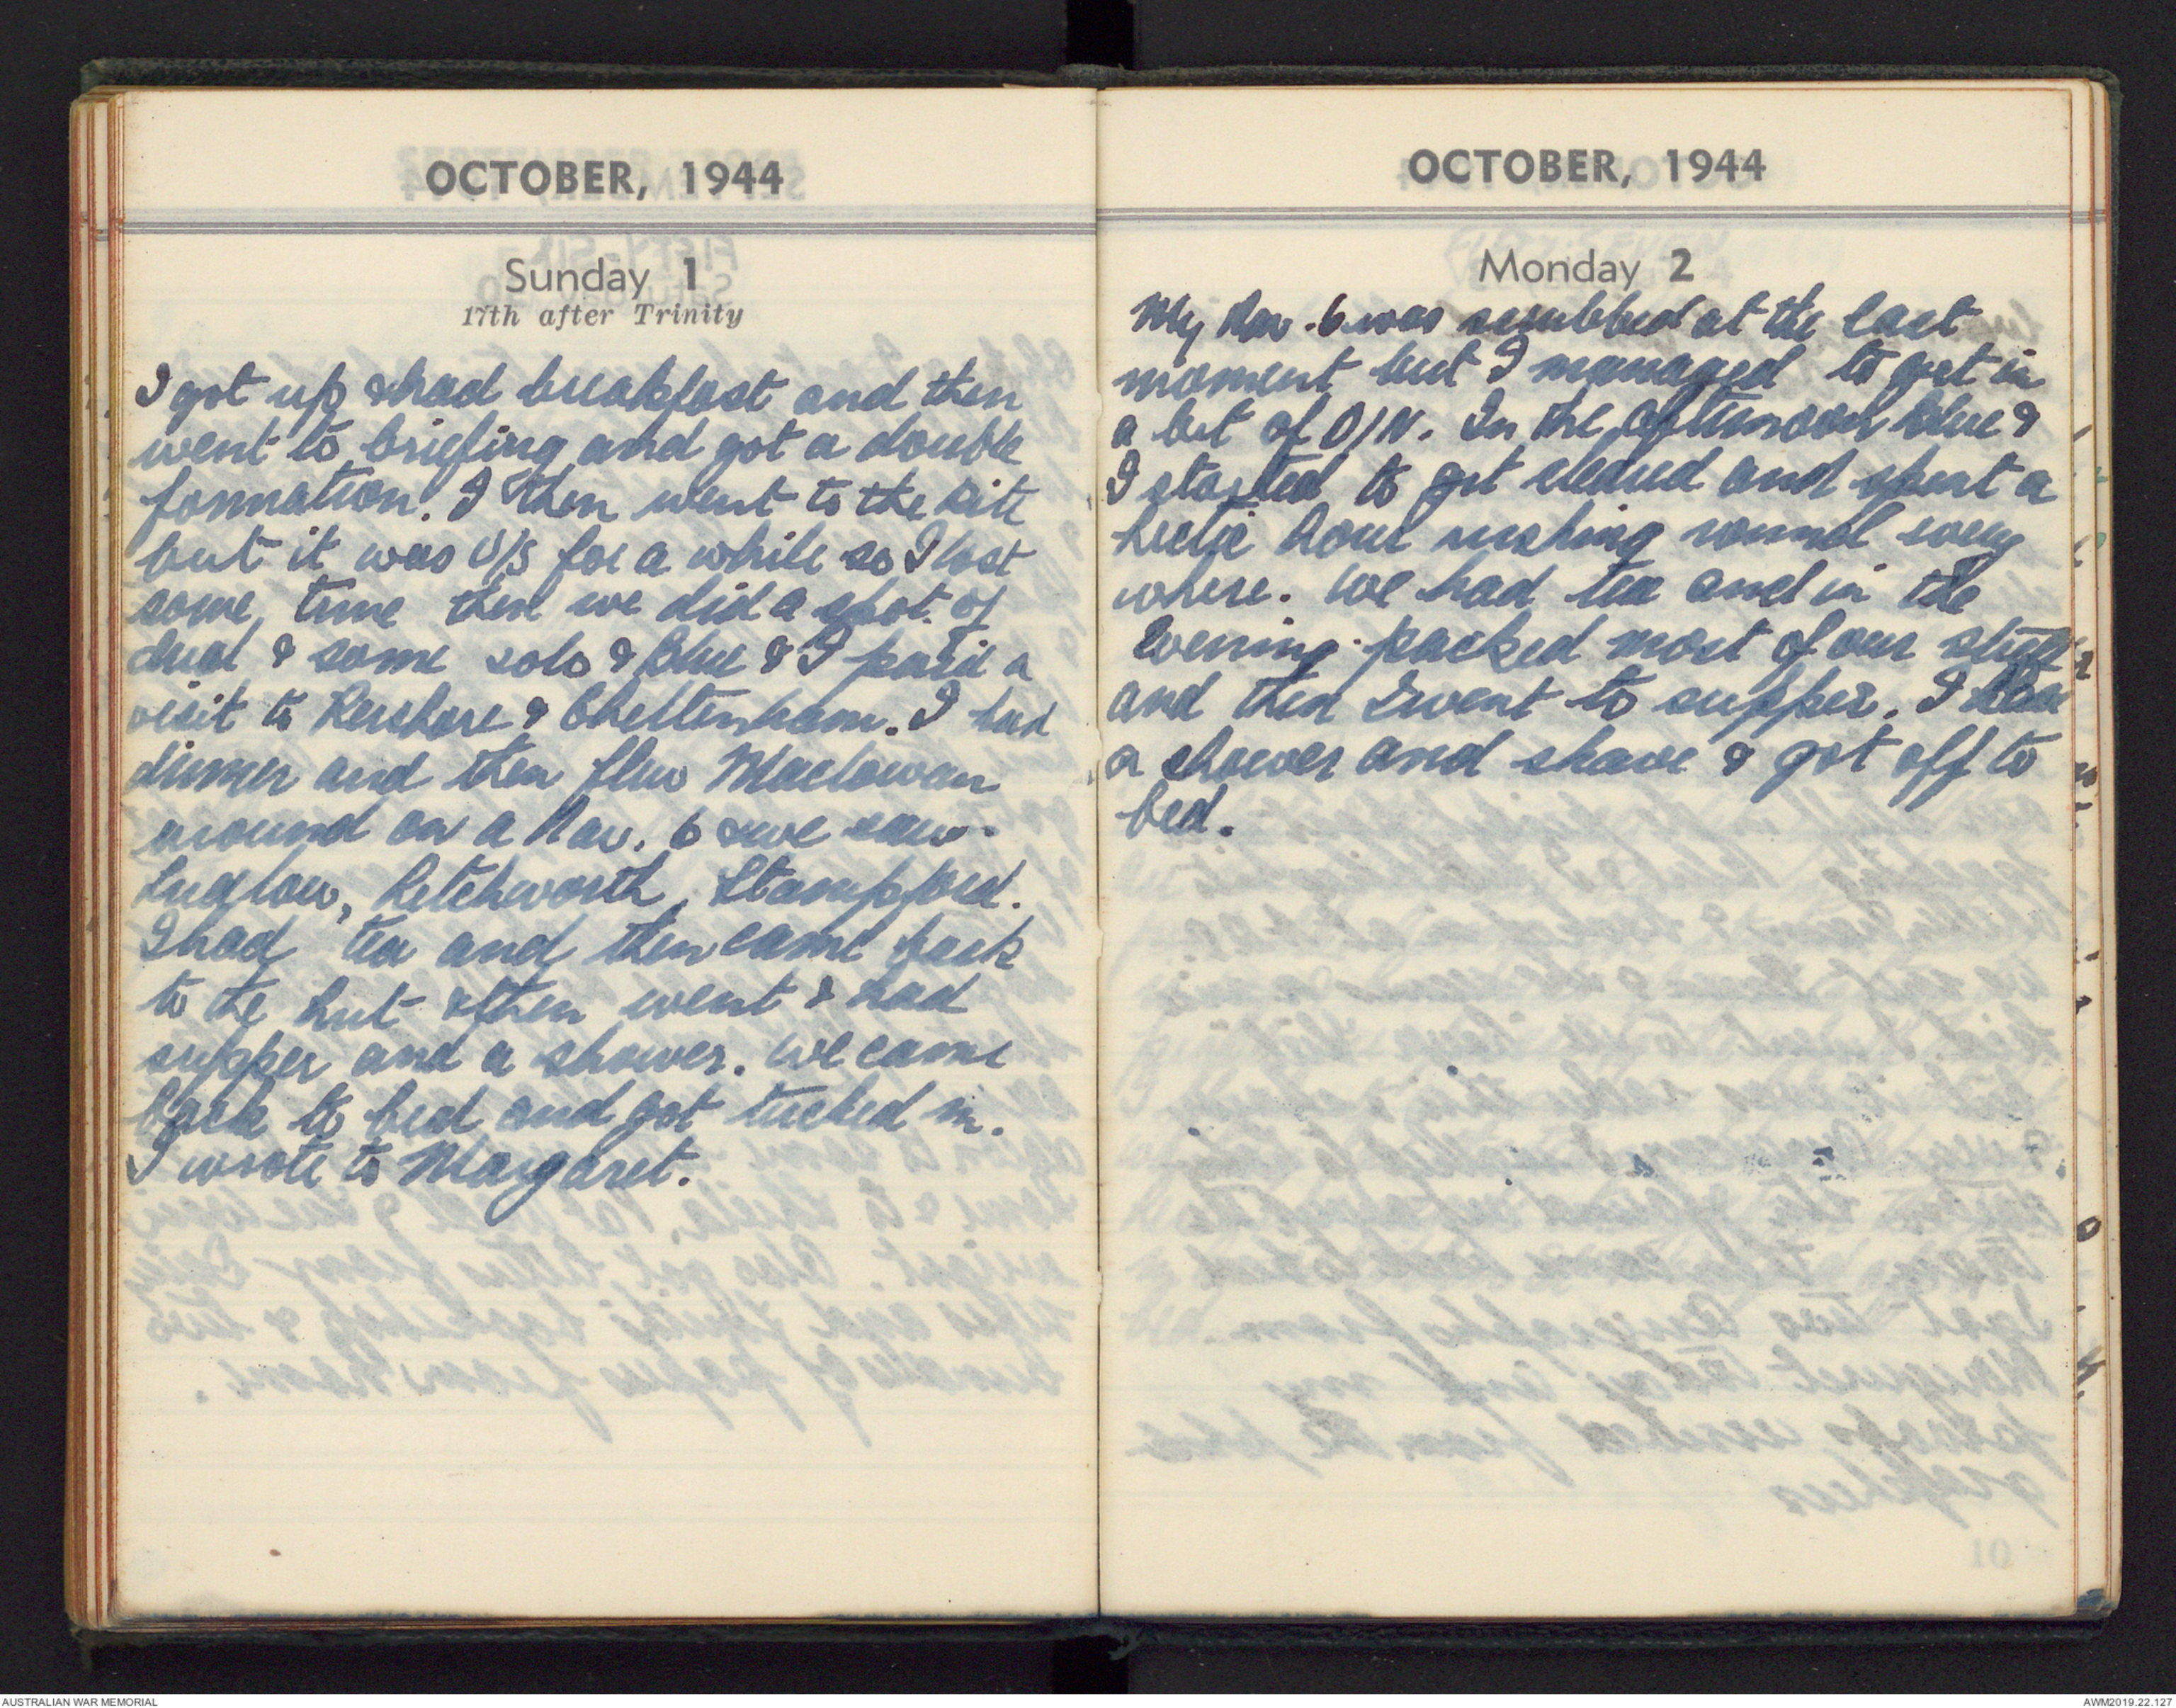 OCTOBER, 1944
Sunday 1
17th after Trinity
I got up & had breakfast and then
went to briefing and got a double
formation. I then went to the kite
but it was U/S for a while so I lost
some time then we did a spot of
dual & some solo & Blue & I paid a
visit to Pershore & Cheltenham. I had
dinner and then flew Maclowan
around on a Nav. 6 & we saw
Ludlow, Letchworth, Stampford.
I had tea and then came back
to the hut & then went & had
supper and a shower. We came
back to bed and got tucked in.
I wrote to Margaret.
OCTOBER, 1944
Monday 2
My Nav. 6 was scrubbed at the last
moment but I managed to get in
a bit of D/N. In the afternoon Blue &
I started to get cleared and spent a
hectic hour rushing round every
where. We had tea and in the
evening packed most of our stuff
and then I went to supper. I
a shower and shave & got off to
bed.
AUSTRALIAN WAR MEMORIAL
AWM2019.22.127